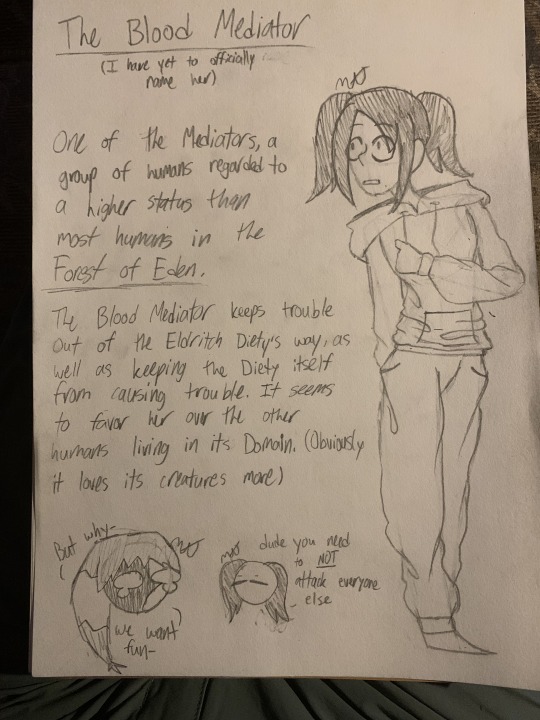 The Blood Mediator
(I have yet to officially
name her)
One of the Mediators, a
group of humans regarded to
a higher status than
most humans in the
Forest of Eden.
The Blood Mediator keeps trouble
out of the Eldritch Diety's way, as
well as keeping the Diety itself
from causing trouble. It seems
to favor her over the other
humans living in its Domain. (Obviously
it loves its creatures more)
But why-
we want
fun-
dude you need
to NOT
attack everyone
else